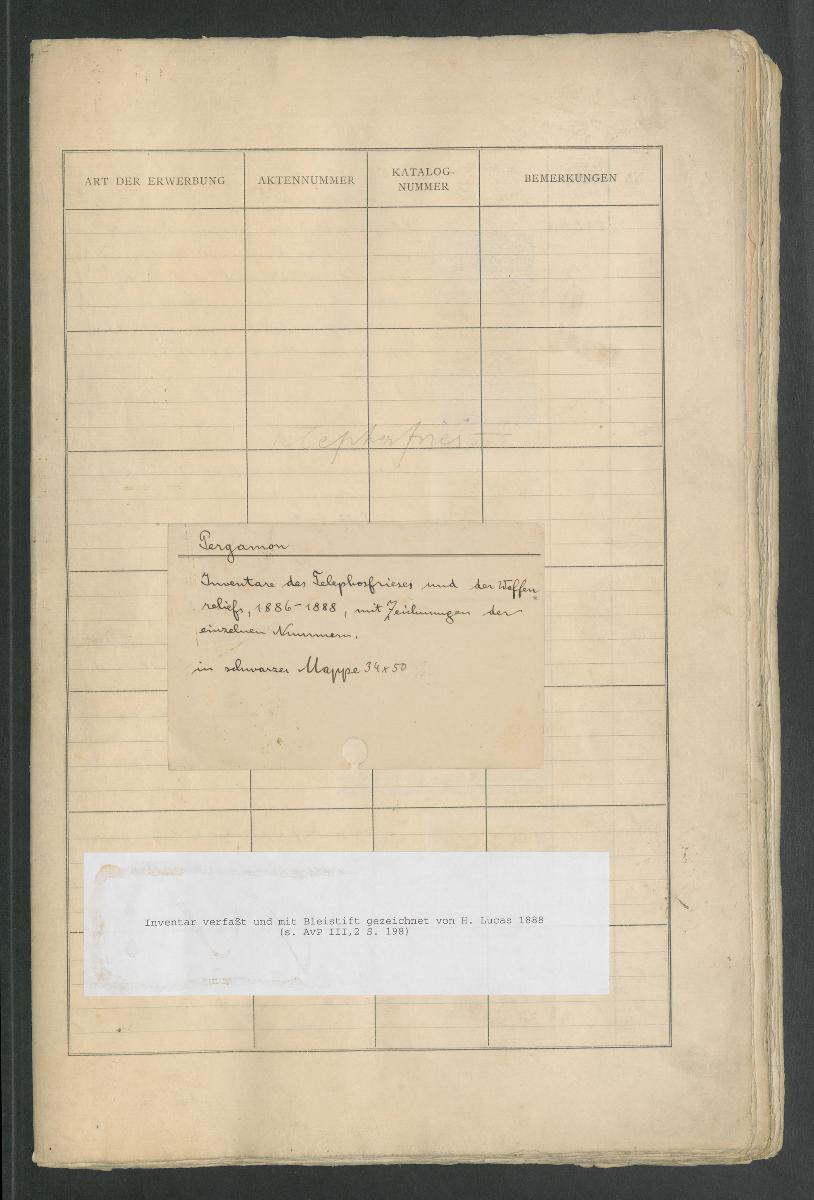 ART DER ERWERBUNG
AKTENNUMMER
KATALOG-
NUMMER
BEMERKUNGEN
Telephosfries
Pergamon
Inventare des Telephosfrieses und der Waffen-
reliefs, 1886-1888, mit Zeichnungen der
einzelnen Nummern.
in schwarzer Mappe 34x50
Inventar verfaßt und mit Bleistift gezeichnet von H. Lucas 1888
(s. AvP III,2 S. 198)